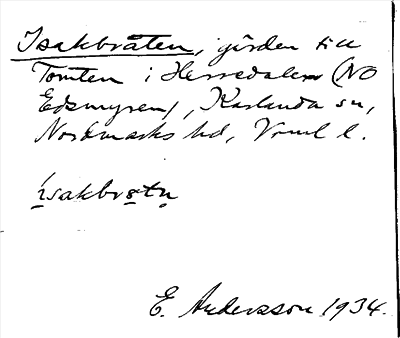 Isakbråten, gården till
Tomten i Herredalen (NO
Edsmyren), Karlanda sn,
Nordmarks hd, Vrml l.
ísakbrɑtn
E. Andersson 1934.